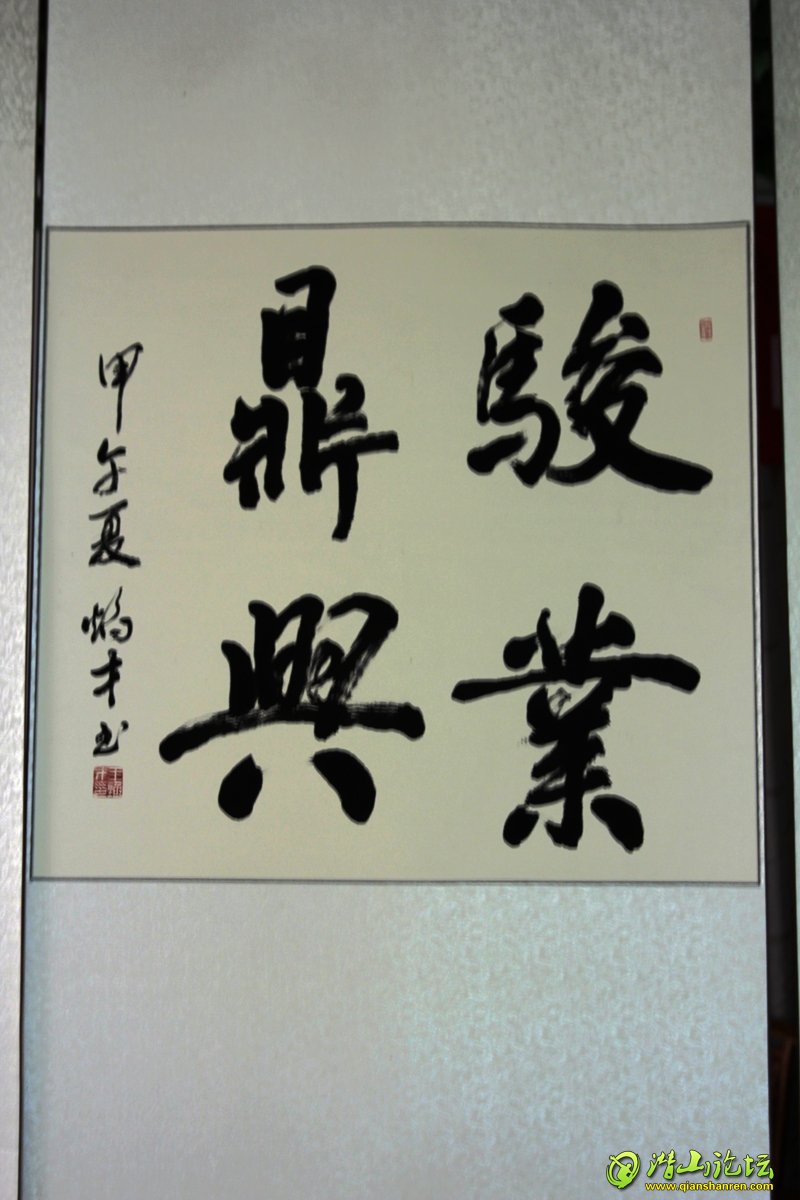 駿業
鼎興
甲午夏炳才书
潜山论坛
www.qianshanren.com